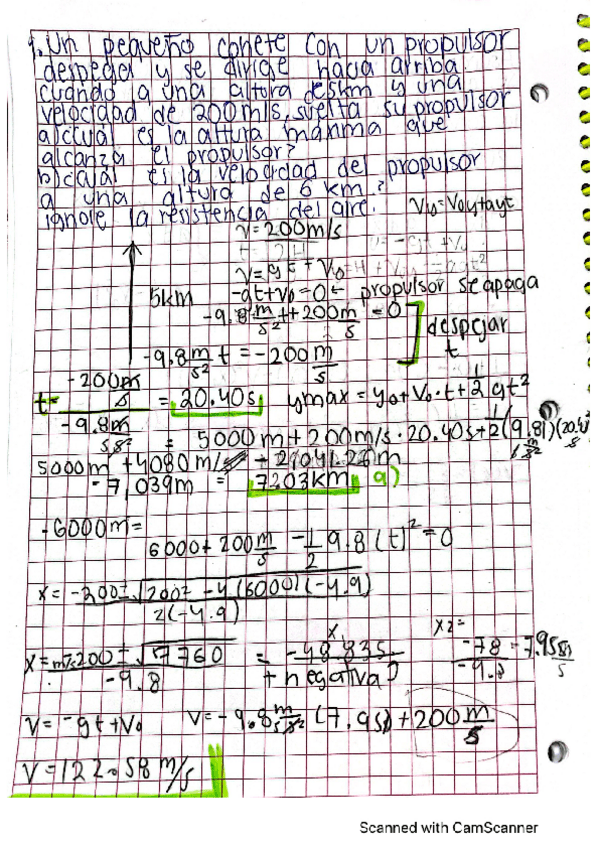 1. Un pequeño cohete con un propulsor
despega y se dirige hacia arriba
cuando a una altura de 5km y una
velocidad de 200m/s, suelta su propulsor
a) cuál es la altura máxima que
alcanza el propulsor?
b) cuál es la velocidad del propulsor
a una altura de 6 km.?
ignore la resistencia del aire. Vy=Voy+ayt
V=200m/s
V=gt+Vo
5km -gt+vo=0← propulsor se apaga
-9.8 m/s² t+200 m/s =0
despejar t
-9.8 m/s² t = -200 m/s
t= -200m/s / -9.8m/s² = 20.40s ymax = yo+Vo·t+1/2 gt²
= 5000m+200m/s·20.40s+1/2(9.81
5000m +4080 m/s
-7,039m = 7203km a)
-6000m=
6000+ 200 m/s -1/2 9.8 (t)² =0
x= -200± √200² -4(6000)(-4.9) / 2(-4.9)
-9.8 + negativa x2= -78 / -9.8
V= -gt+Vo V= -9.8 m/s² (7.95s)+200 m/s
V=122.58 m/s
Scanned with CamScanner